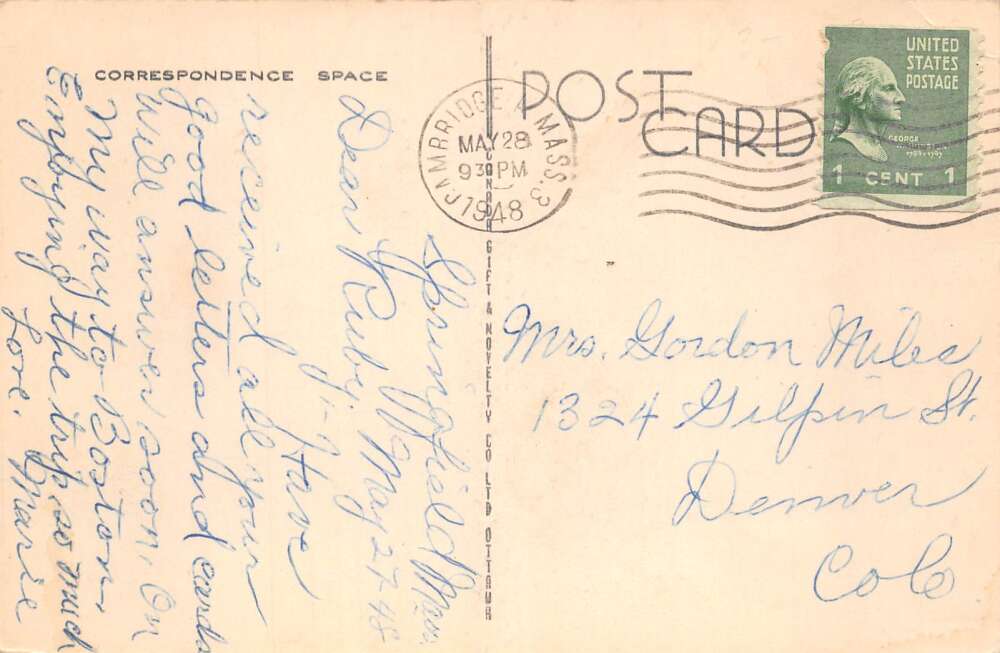 CORRESPONDENCE SPACE
POST
CARD
CAMBRIDGE A MASS. 3
MAY 28
930 PM
1948
UNITED
STATES
POSTAGE
GEORGE
WASHINGTON
1 CENT 1
CONDOR GIFT & NOVELTY CO LTD OTTAWA
Springfield Mass.
May 27-48
Dear Ruby:- Have
received all your
good letters and cards
Will answer soon. On
My way to Boston,
Enjoying the trip so much
Love. Marie
Mrs. Gordon Miles
1324 Gilpin St.
Denver
Colo